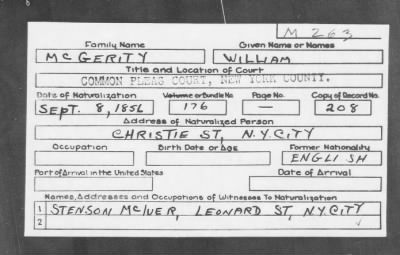 M 263
Family Name Given Name or Names
McGERITY WILLIAM
Title and Location of Court
COMMON PLEAS COURT, NEW YORK COUNTY.
Date of Naturalization Volume or Bundle No. Page No. Copy of Record No.
SEPT. 8, 1856 176 — 208
Address of Naturalized Person
CHRISTIE ST, N.Y.CITY
Occupation Birth Date or Age Former Nationality
ENGLISH
Port of Arrival in the United States Date of Arrival
Names, Addresses and Occupations of Witnesses To Naturalization
1 STENSON McIVER, LEONARD ST, N.Y.CITY
2